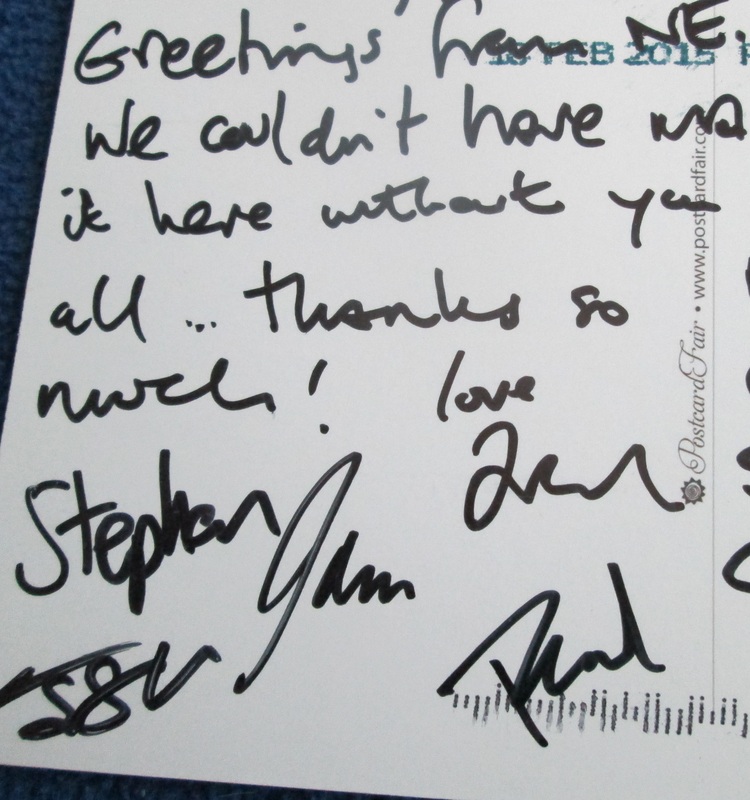 Greetings from NE.
16 FEB 2015
We couldn't have ma
it here without you
all ... thanks so
much! love
Stephen
Paul
PostcardFair • www.postcardfair.co